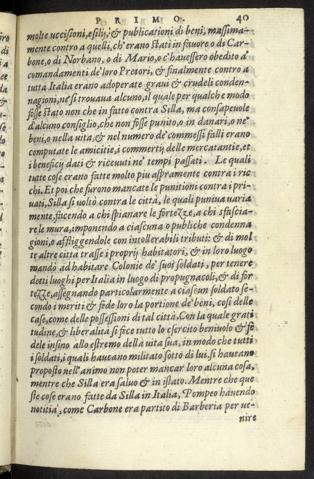 PRIMO. 40
molte uccisioni, esilij, & publicationi di beni, massima-
mente contro a quelli, ch'erano stati in fauore, o di Car-
bone, o di Norbano, o di Mario, c'hauessero obedito a'
comandamenti de' loro Pretori, & finalmente contro a
tutta Italia erano adoperate graui & crudeli conden-
nagioni, ne si trouaua alcuno, il quale per qualche modo
fosse stato non che in fatto contra Silla, ma consapeuole
d'alcuno consiglio, che non fosse punito, o in danari, o ne'
beni, o nella uita, & nel numero de' commessi falli erano
computate le amicitie, i commertij delle mercatantie, et
i beneficij dati & riceuuti ne' tempi passati. Le quali
tutte cose erano fatte molto piu aspramente contra i ric
chi. Et poi che furono mancate le punitioni contra i pri-
uati, Silla si uoltò contro le città, le quali puniua uaria
mente, facendo a chi spianare le fortezze, a chi sfascia-
re le mura, imponendo a ciascuna o publiche condenna
gioni, o affliggendole con intollerabili tributi: & di mol
te altre città trasse i proprij habitatori, & in loro luogo
mandò ad habitare Colonie de' suoi soldati, per tenere
detti luoghi per Italia in luogo di propugnacoli, & di for
tezze, assegnando particolarmente a ciascun soldato se-
condo i meriti & fede loro la portione de' beni, cosi delle
case, come delle possessioni di tal città. Con la quale grati
tudine, & liberalità si fece tutto lo esercito beniuolo & fe
dele insino allo estremo della uita sua, in modo che tutti
i soldati, i quali haueano militato sotto di lui, si haueano
proposto nell'animo non poter mancar loro alcuna cosa,
mentre che Silla era saluo & in istato. Mentre che que
ste cose erano fatte da Silla in Italia, Pompeo hauendo
notitia, come Carbone era partito di Barberia per ue-
nire